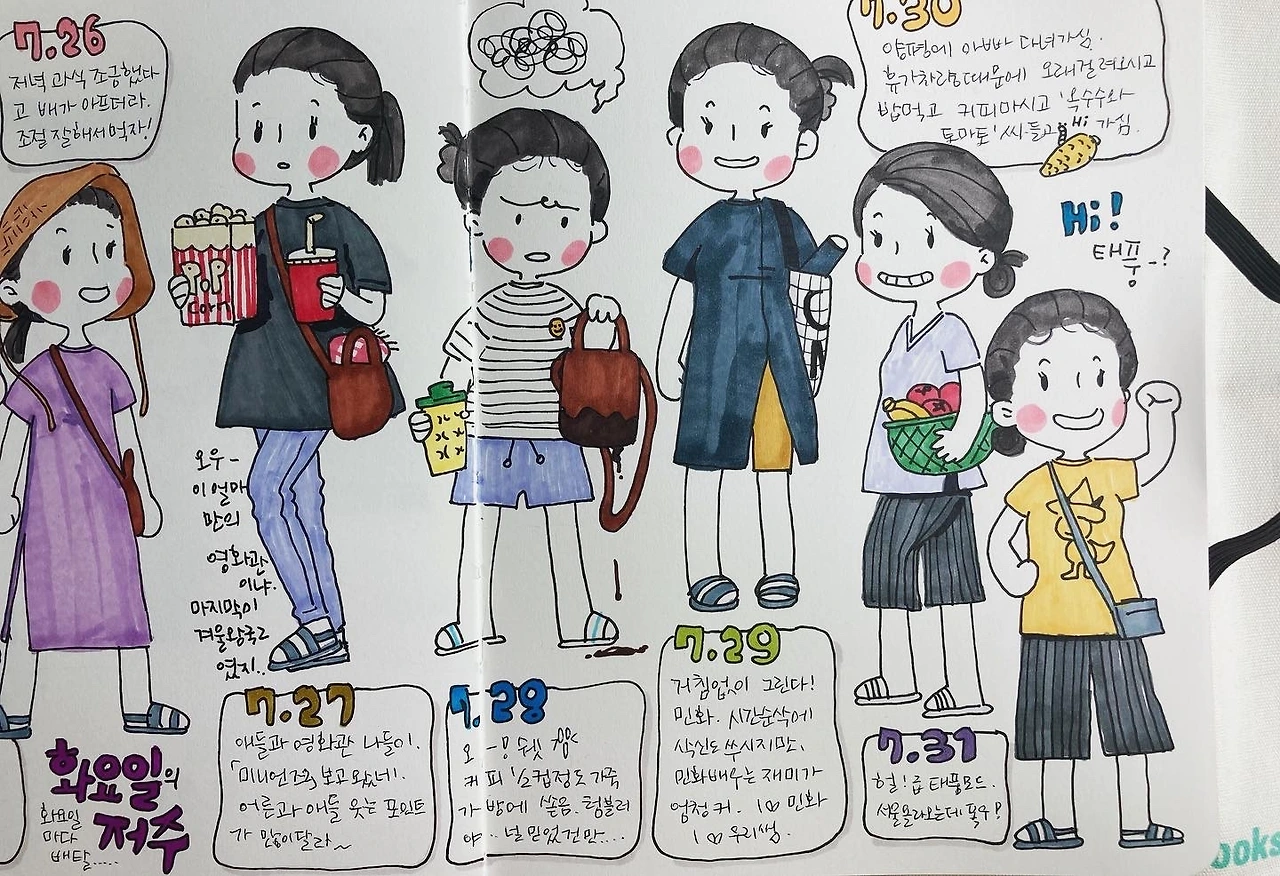 7.26
저녁 과식 조금했다
고 배가 아프더라.
조절 잘해서 먹자!
POP
corn
오우-
이 얼마
만의
영화관
이냐.
마지막이
겨울왕국2
였지..
화요일의
저주
화요일
마다
배탈.....
7.27
애들과 영화관 나들이.
「미니언즈2」 보고왔네!.
어른과 애들 웃는 포인트
가 많이달라~
7.28
오 - 마이 쉣
커피 1/2컵정도 가죽
가방에 쏟음. 텀블러
야.. 널 믿었건만...
7.29
거침없이 그린다!
민화. 시간순삭에
삭신도 쑤시지만,
민화배우는 재미가
엄청 커. I ♡ 민화
I ♡ 우리쌤.
7.30
양평에 아빠 다녀가심.
휴가차량때문에 오래걸려오시고
밥먹고 커피마시고 '옥수수와
토마토'씨들고 가심.
Hi
Hi!
태풍-?
7.31
헐! 급 태풍모드.
서울올라오는데 폭우!
ooks